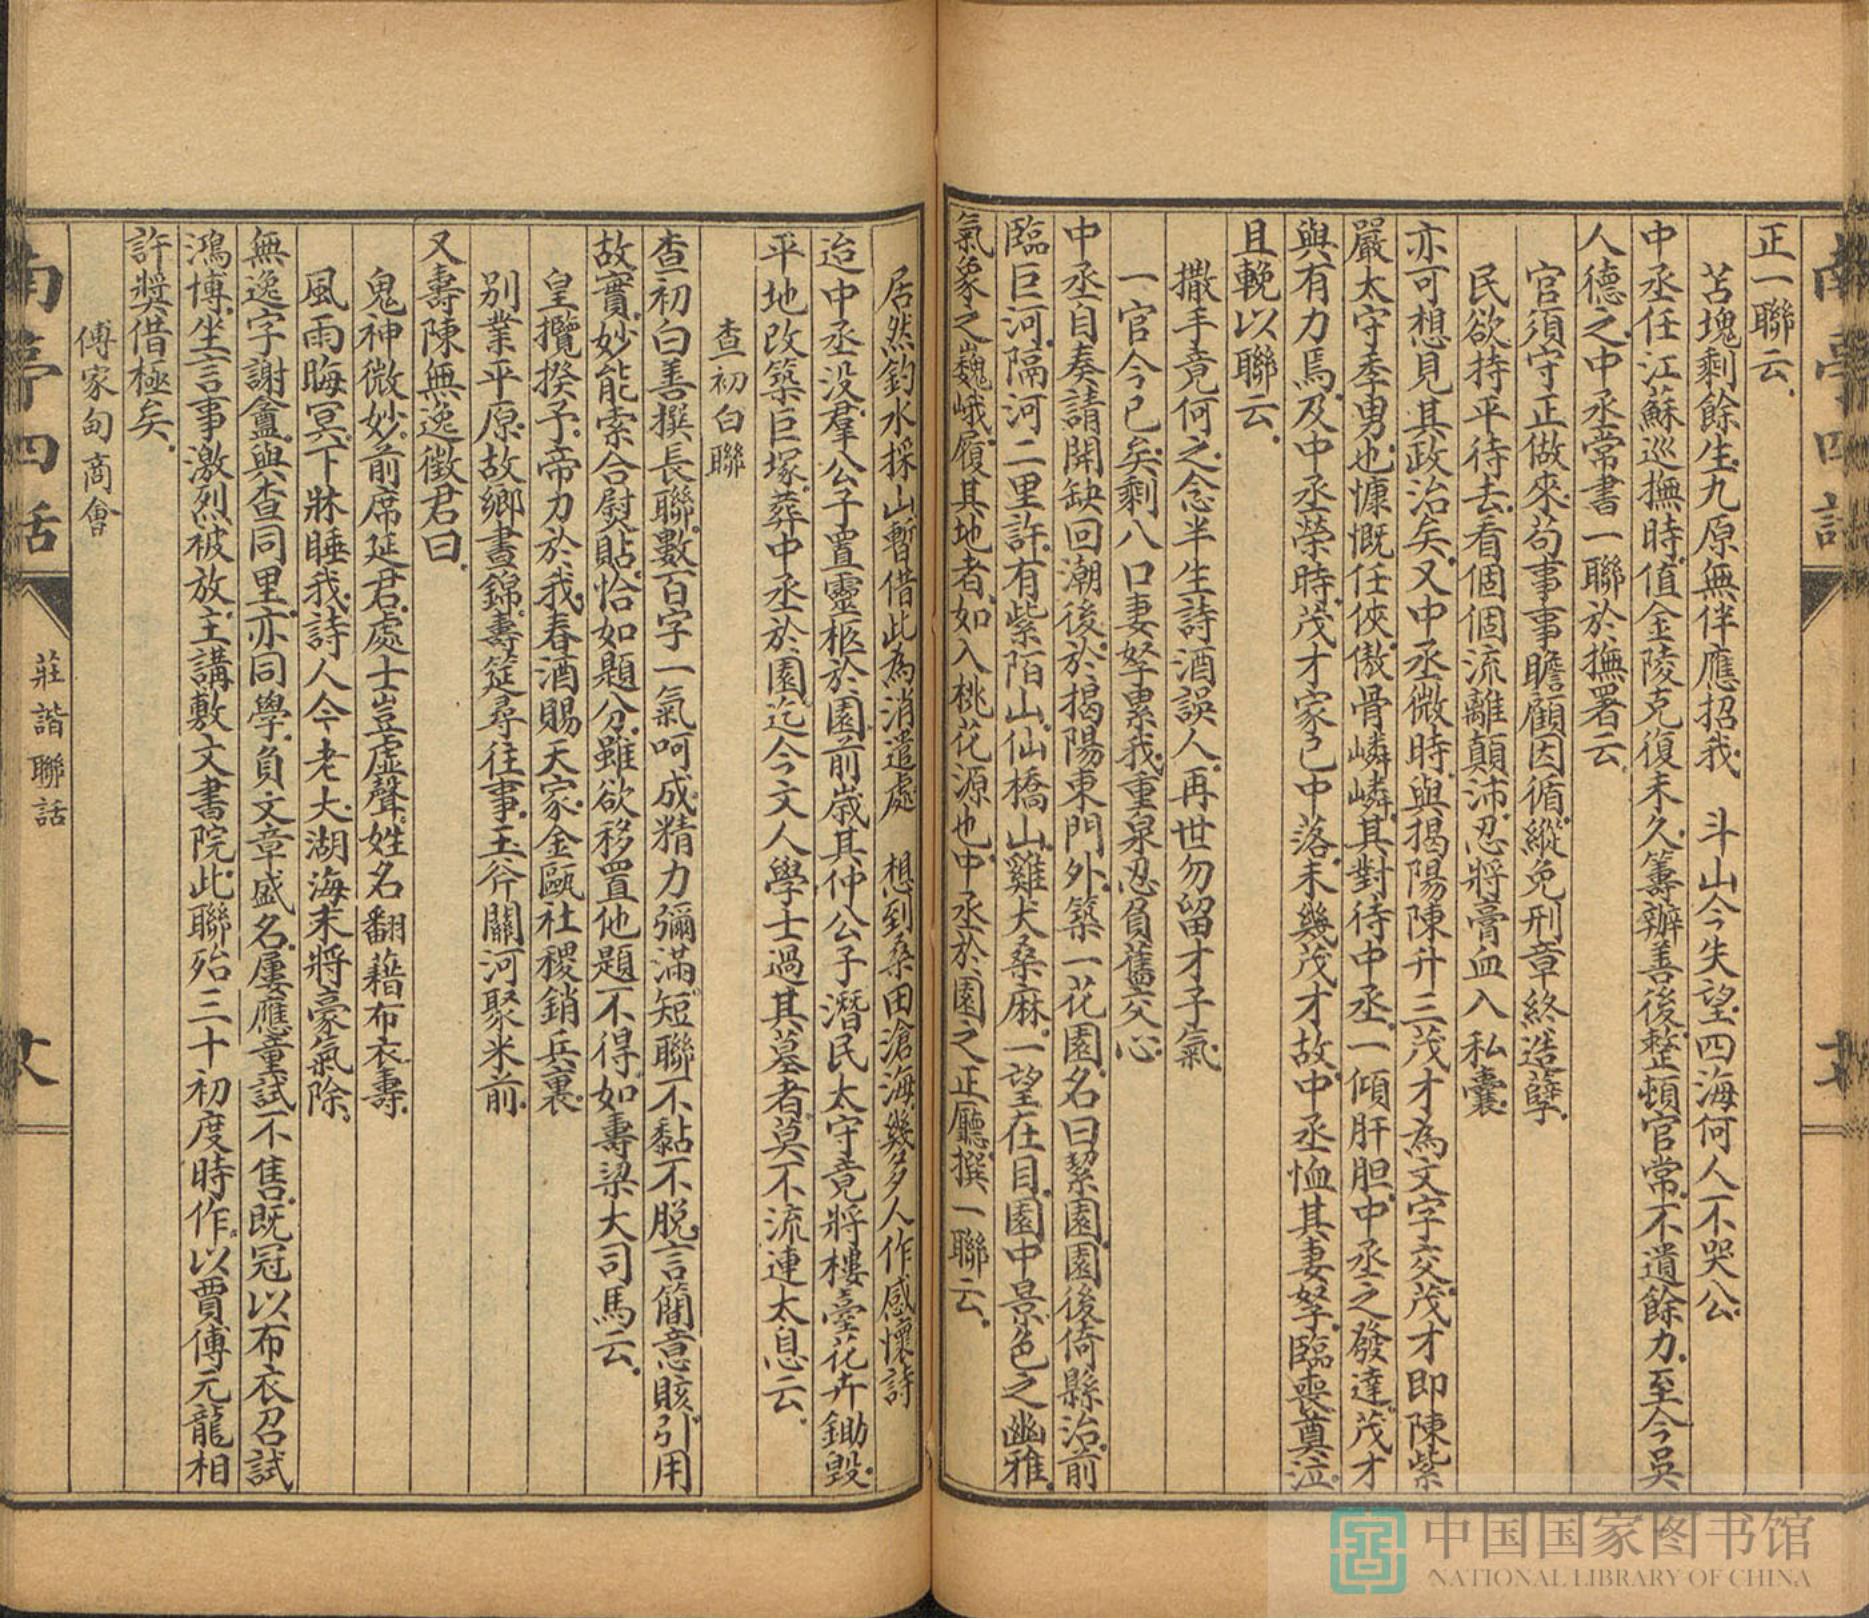 正一聯云
苫塊剩餘生九原無伴應招我　斗山今失望四海何人不哭公
中丞任江蘇巡撫時值金陵克復未久籌辦善後整頓官常不遺餘力至今吳
人德之中丞常書一聯於撫署云
官須守正做來苟事事瞻顧因循縱免刑章終造孽
民欲持平待去看個個流離顛沛忍將膏血入私囊
亦可想見其政治矣又中丞微時與揭陽陳升三茂才為文字交茂才即陳紫
嚴太守季勇也慷慨任俠傲骨嶙嶙其對待中丞一傾肝胆中丞之發達茂才
與有力焉及中丞榮時茂才家已中落未幾茂才故中丞恤其妻孥臨喪奠泣
且輓以聯云
撒手竟何之念半生詩酒誤人再世勿留才子氣
一官今已矣剩八口妻孥累我重泉忍負舊交心
中丞自奏請開缺回潮後於揭陽東門外築一花園名曰絜園園後倚縣治前
臨巨河隔河二里許有紫陌山仙橋山雞犬桑麻一望在目園中景色之幽雅
氣象之巍峨履其地者如入桃花源也中丞於園之正廳撰一聯云
居然釣水採山暫借此為消遣處　想到桑田滄海幾多人作感懷詩
迨中丞沒羣公子置靈柩於園前歲其仲公子潛民太守竟將樓臺花卉鋤毀
平地改築巨塚葬中丞於園迄今文人學士過其墓者莫不流連太息云
查初白聯
查初白善撰長聯數百字一氣呵成精力彌滿短聯不黏不脫言簡意賅引用
故實妙能索合熨貼恰如題分雖欲移置他題不得如壽梁大司馬云
皇攬揆予帝力於我春酒賜天家金甌社稷銷兵裏
別業平原故鄉晝錦壽筵尋往事玉斧關河聚米前
又壽陳無逸徵君曰
鬼神微妙前席延君處士豈虛聲姓名翻藉布衣壽
風雨晦冥下牀睡我詩人今老大湖海未將豪氣除
無逸字謝盦與查同里亦同學負文章盛名屢應童試不售既冠以布衣召試
鴻博坐言事激烈被放主講敷文書院此聯殆三十初度時作以賈傅元龍相
許獎借極矣
傅家甸商會
南亭四話
莊諧聯話